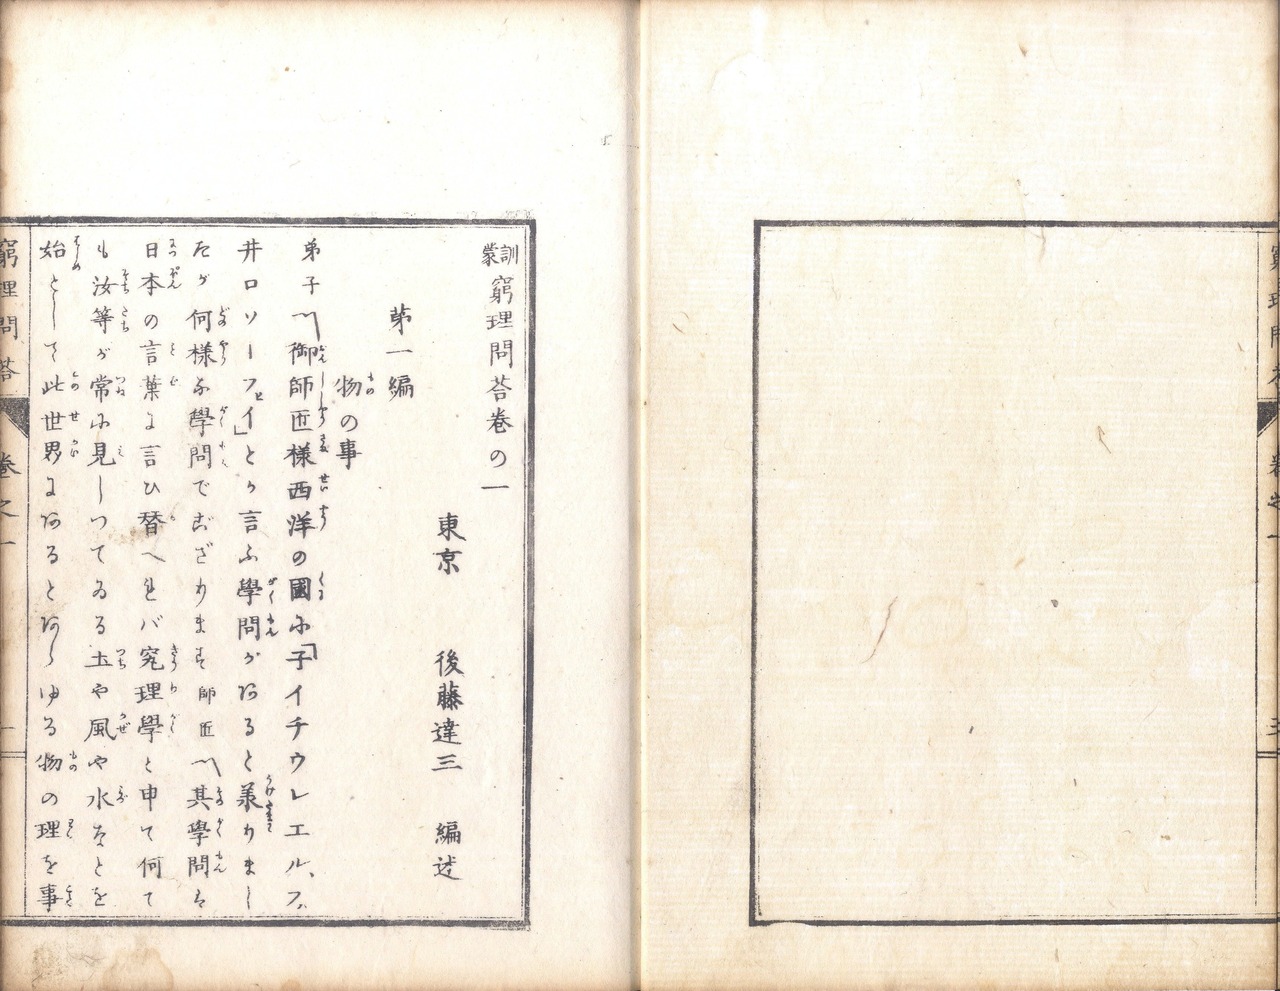 訓蒙窮理問荅卷の一
東京 後藤達三 編述
苐一編
物の事
弟子〽御師匠様西洋の國に「子イチウレエル、フ
井ロソーフヒイ」とか言ふ學問があると兼りまし
たが何様な學問でござります師匠〽其學問は
日本の言葉に言ひ替へれバ究理學と申て何て
も汝等が常に見しつてゐる土や風や水などを
始として此世界にあるとあらゆる物の理を事
窮理問荅 卷之一 一